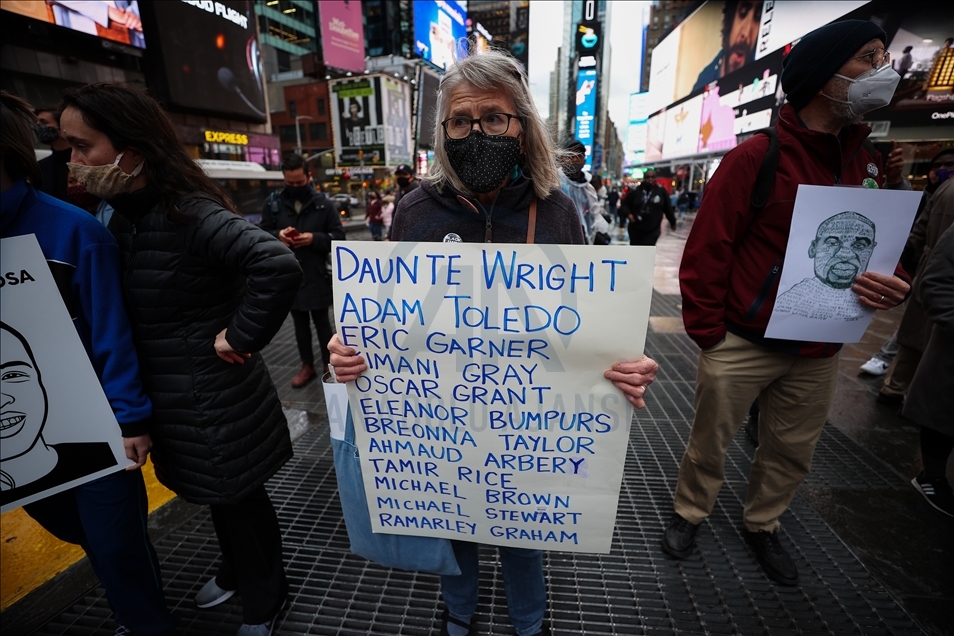 OUD FLIGHT
EXPRESS
OSA
DAUNTE WRIGHT
ADAM TOLEDO
ERIC GARNER
IMANI GRAY
OSCAR GRANT
ELEANOR BUMPURS
BREONNA TAYLOR
AHMAUD ARBERY
TAMIR RICE
MICHAEL BROWN
MICHAEL STEWART
RAMARLEY GRAHAM